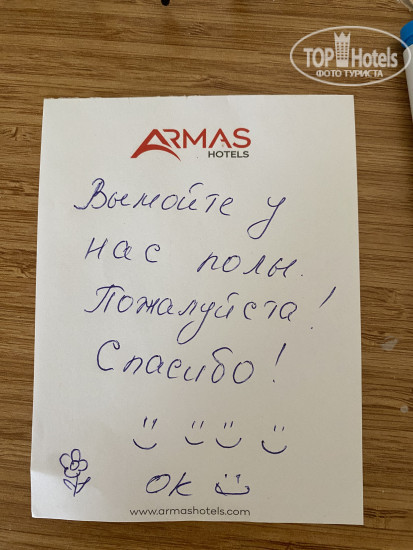 TOP Hotels
ФОТО ТУРИСТА
ARMAS
HOTELS
Вымойте у
нас полы.
Пожалуйста!
Спасибо!
ОК
www.armashotels.com